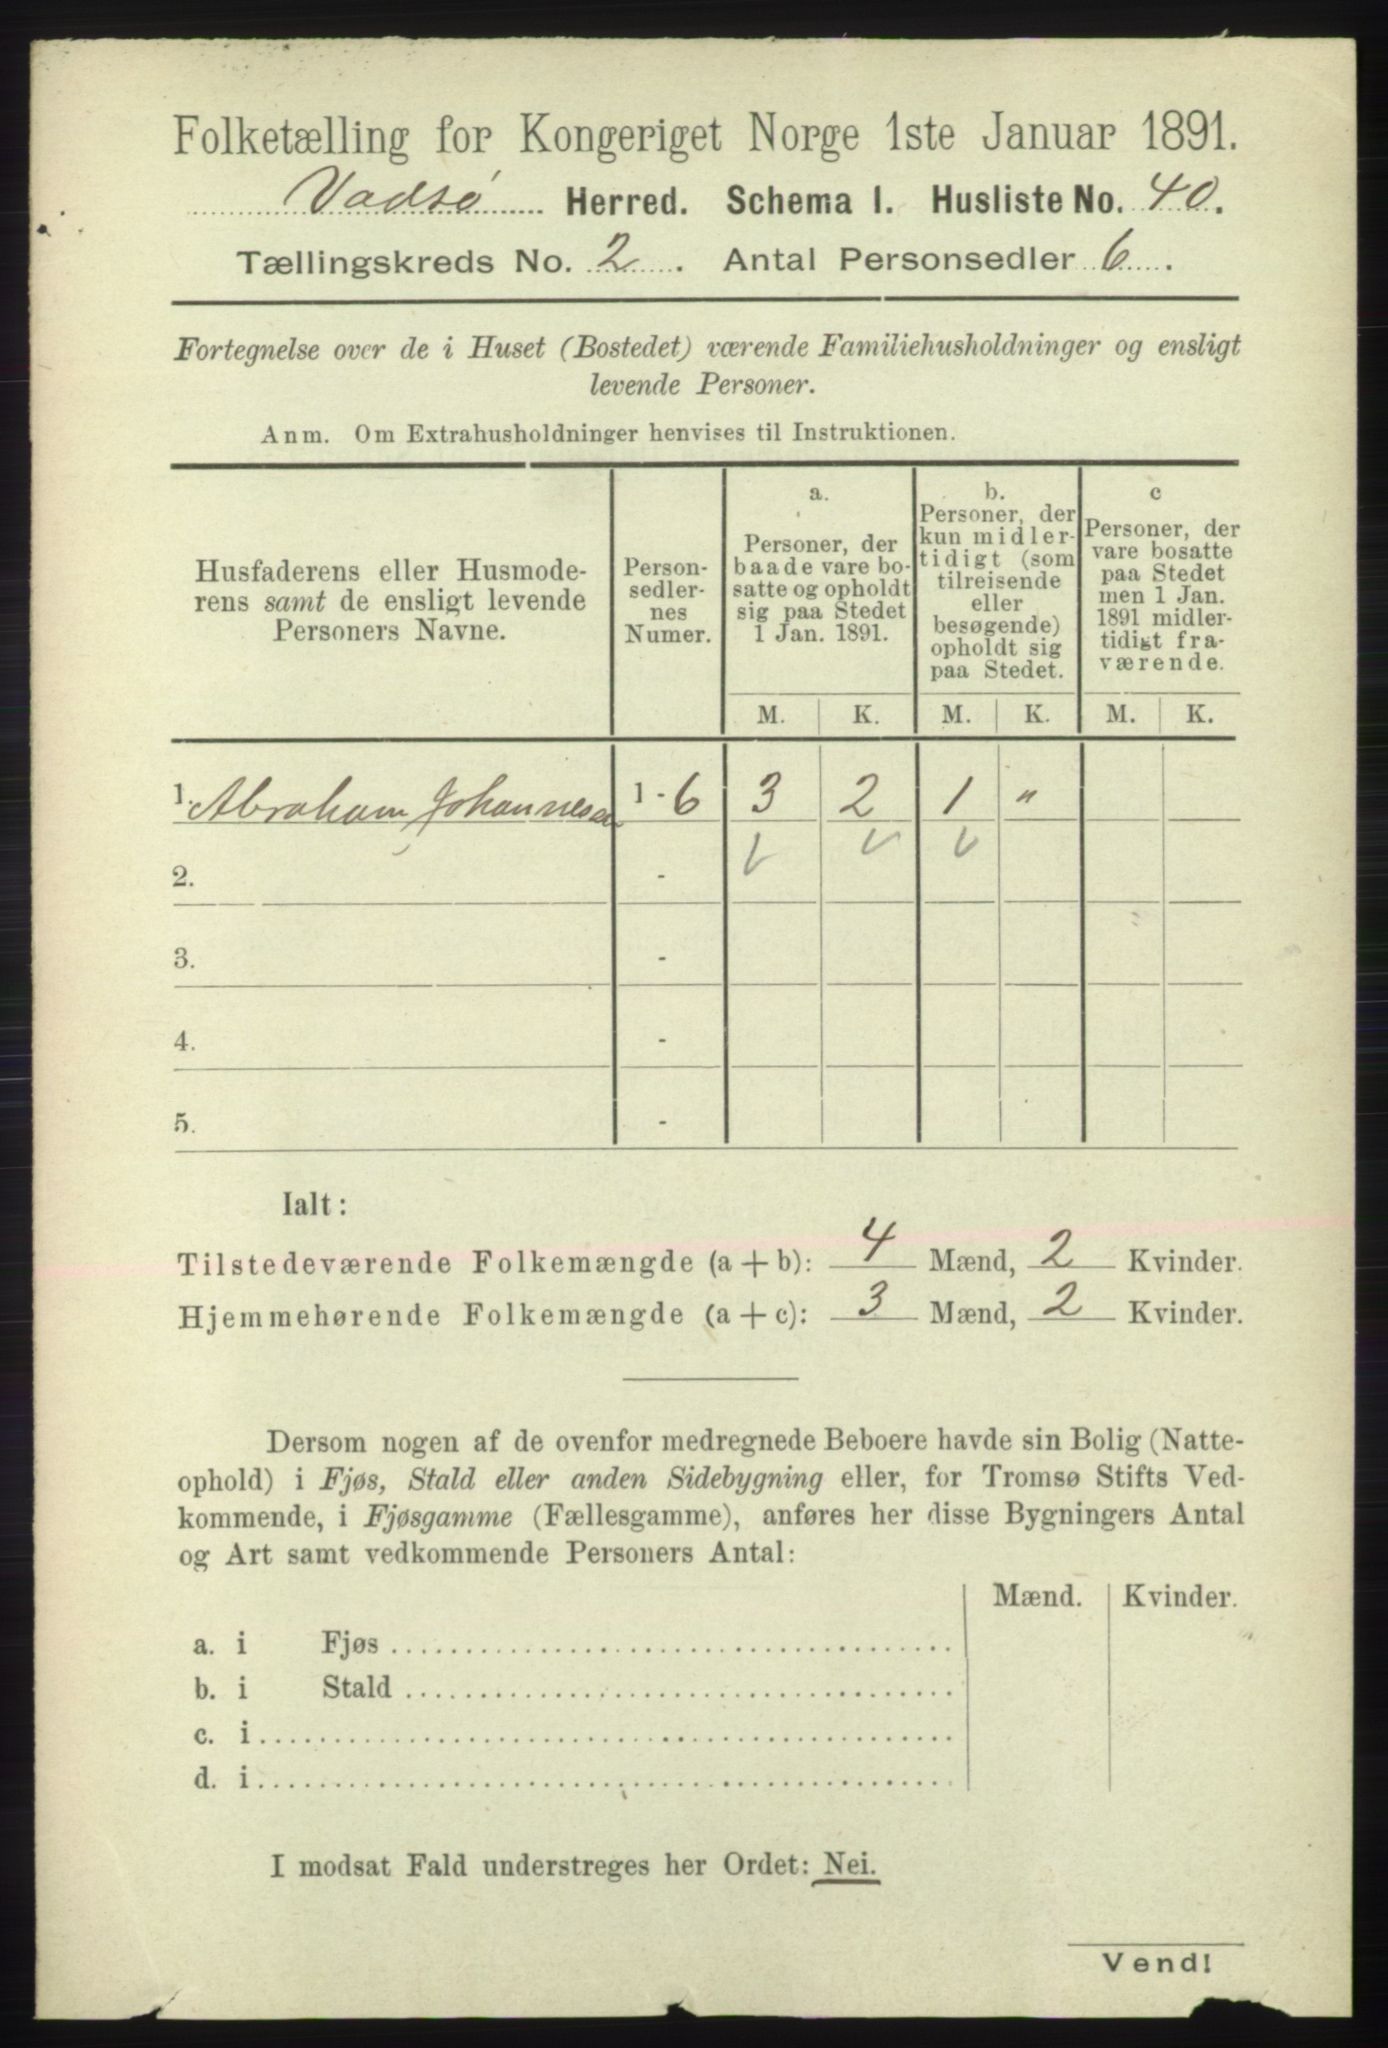 Folketælling for Kongeriget Norge 1ste Januar 1891.
Vadsø Herred. Schema I. Husliste No. 40.
Tællingskreds No. 2. Antal Personsedler 6.
Fortegnelse over de i Huset (Bostedet) værende Familiehusholdninger og ensligt
levende Personer.
Anm. Om Extrahusholdninger henvises til Instruktionen.
Husfaderens eller Husmode-
rens samt de ensligt levende
Personers Navne.
Person-
sedler-
nes
Numer.
a.
Personer, der
baade vare bo-
satte og opholdt
sig paa Stedet
1 Jan. 1891.
b.
Personer, der
kun midler-
tidigt (som
tilreisende
eller
besøgende)
opholdt sig
paa Stedet.
c
Personer, der
vare bosatte
paa Stedet
men 1 Jan.
1891 midler-
tidigt fra-
værende.
M. K. M. K. M. K.
1. Abraham Johannesen 1-6 3 2 1 "
2. -
3. -
4. -
5. -
Ialt:
Tilstedeværende Folkemængde (a + b): 4 Mænd, 2 Kvinder.
Hjemmehørende Folkemængde (a + c): 3 Mænd, 2 Kvinder.
Dersom nogen af de ovenfor medregnede Beboere havde sin Bolig (Natte-
ophold) i Fjøs, Stald eller anden Sidebygning eller, for Tromsø Stifts Ved-
kommende, i Fjøsgamme (Fællesgamme), anføres her disse Bygningers Antal
og Art samt vedkommende Personers Antal:
Mænd. Kvinder.
a. i Fjøs
b. i Stald
c. i
d. i
I modsat Fald understreges her Ordet: Nei.
Vend!